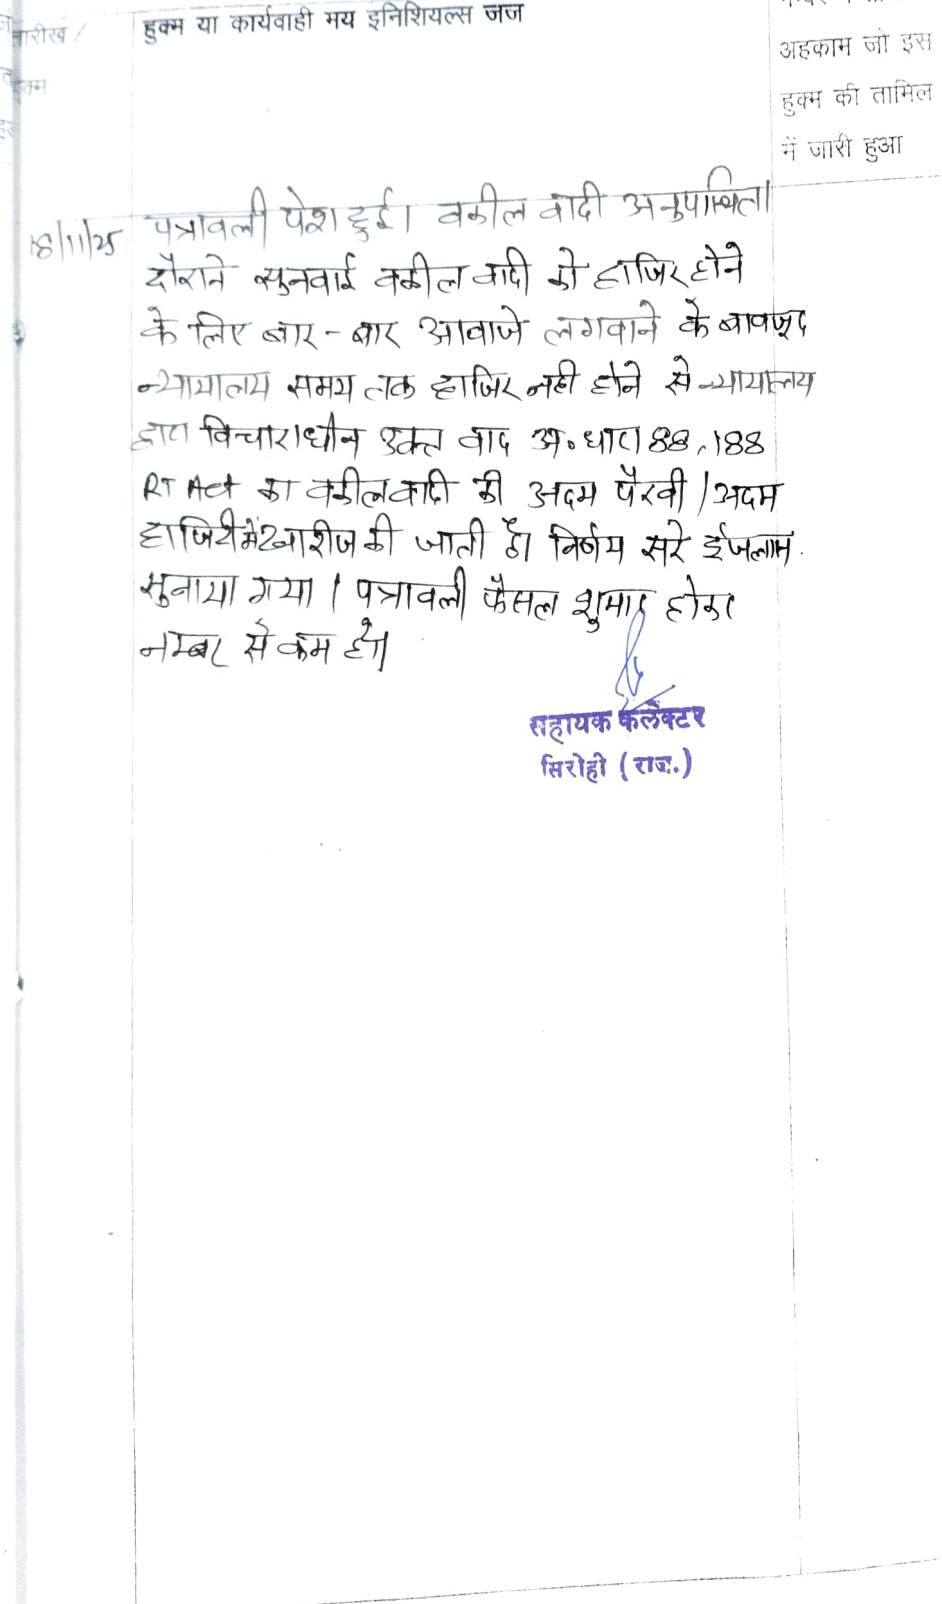 तारीख /
हुक्म या कार्यवाही मय इनिशियल्स जज
अहकाम जो इस
हुक्म की तामिल
में जारी हुआ
18/11/25
पत्रावली पेश हुई। वकील वादी अनुपस्थित।
दौराने सुनवाई वकील वादी को हाजिर होने
के लिए बार-बार आवाजे लगवाने के बावजूद
न्यायालय समय तक हाजिर नही होने से न्यायालय
द्वारा विचाराधीन उक्त वाद अ॰ धारा 88, 188
RT Act का वकील वादी की अदम पैरवी / अदम
हाजिरी में खारीज की जाती है। निर्णय सरे ईजलास
सुनाया गया। पत्रावली फैसल शुमार होकर
नम्बर से कम हो।
सहायक कलेक्टर
सिरोही (राज.)